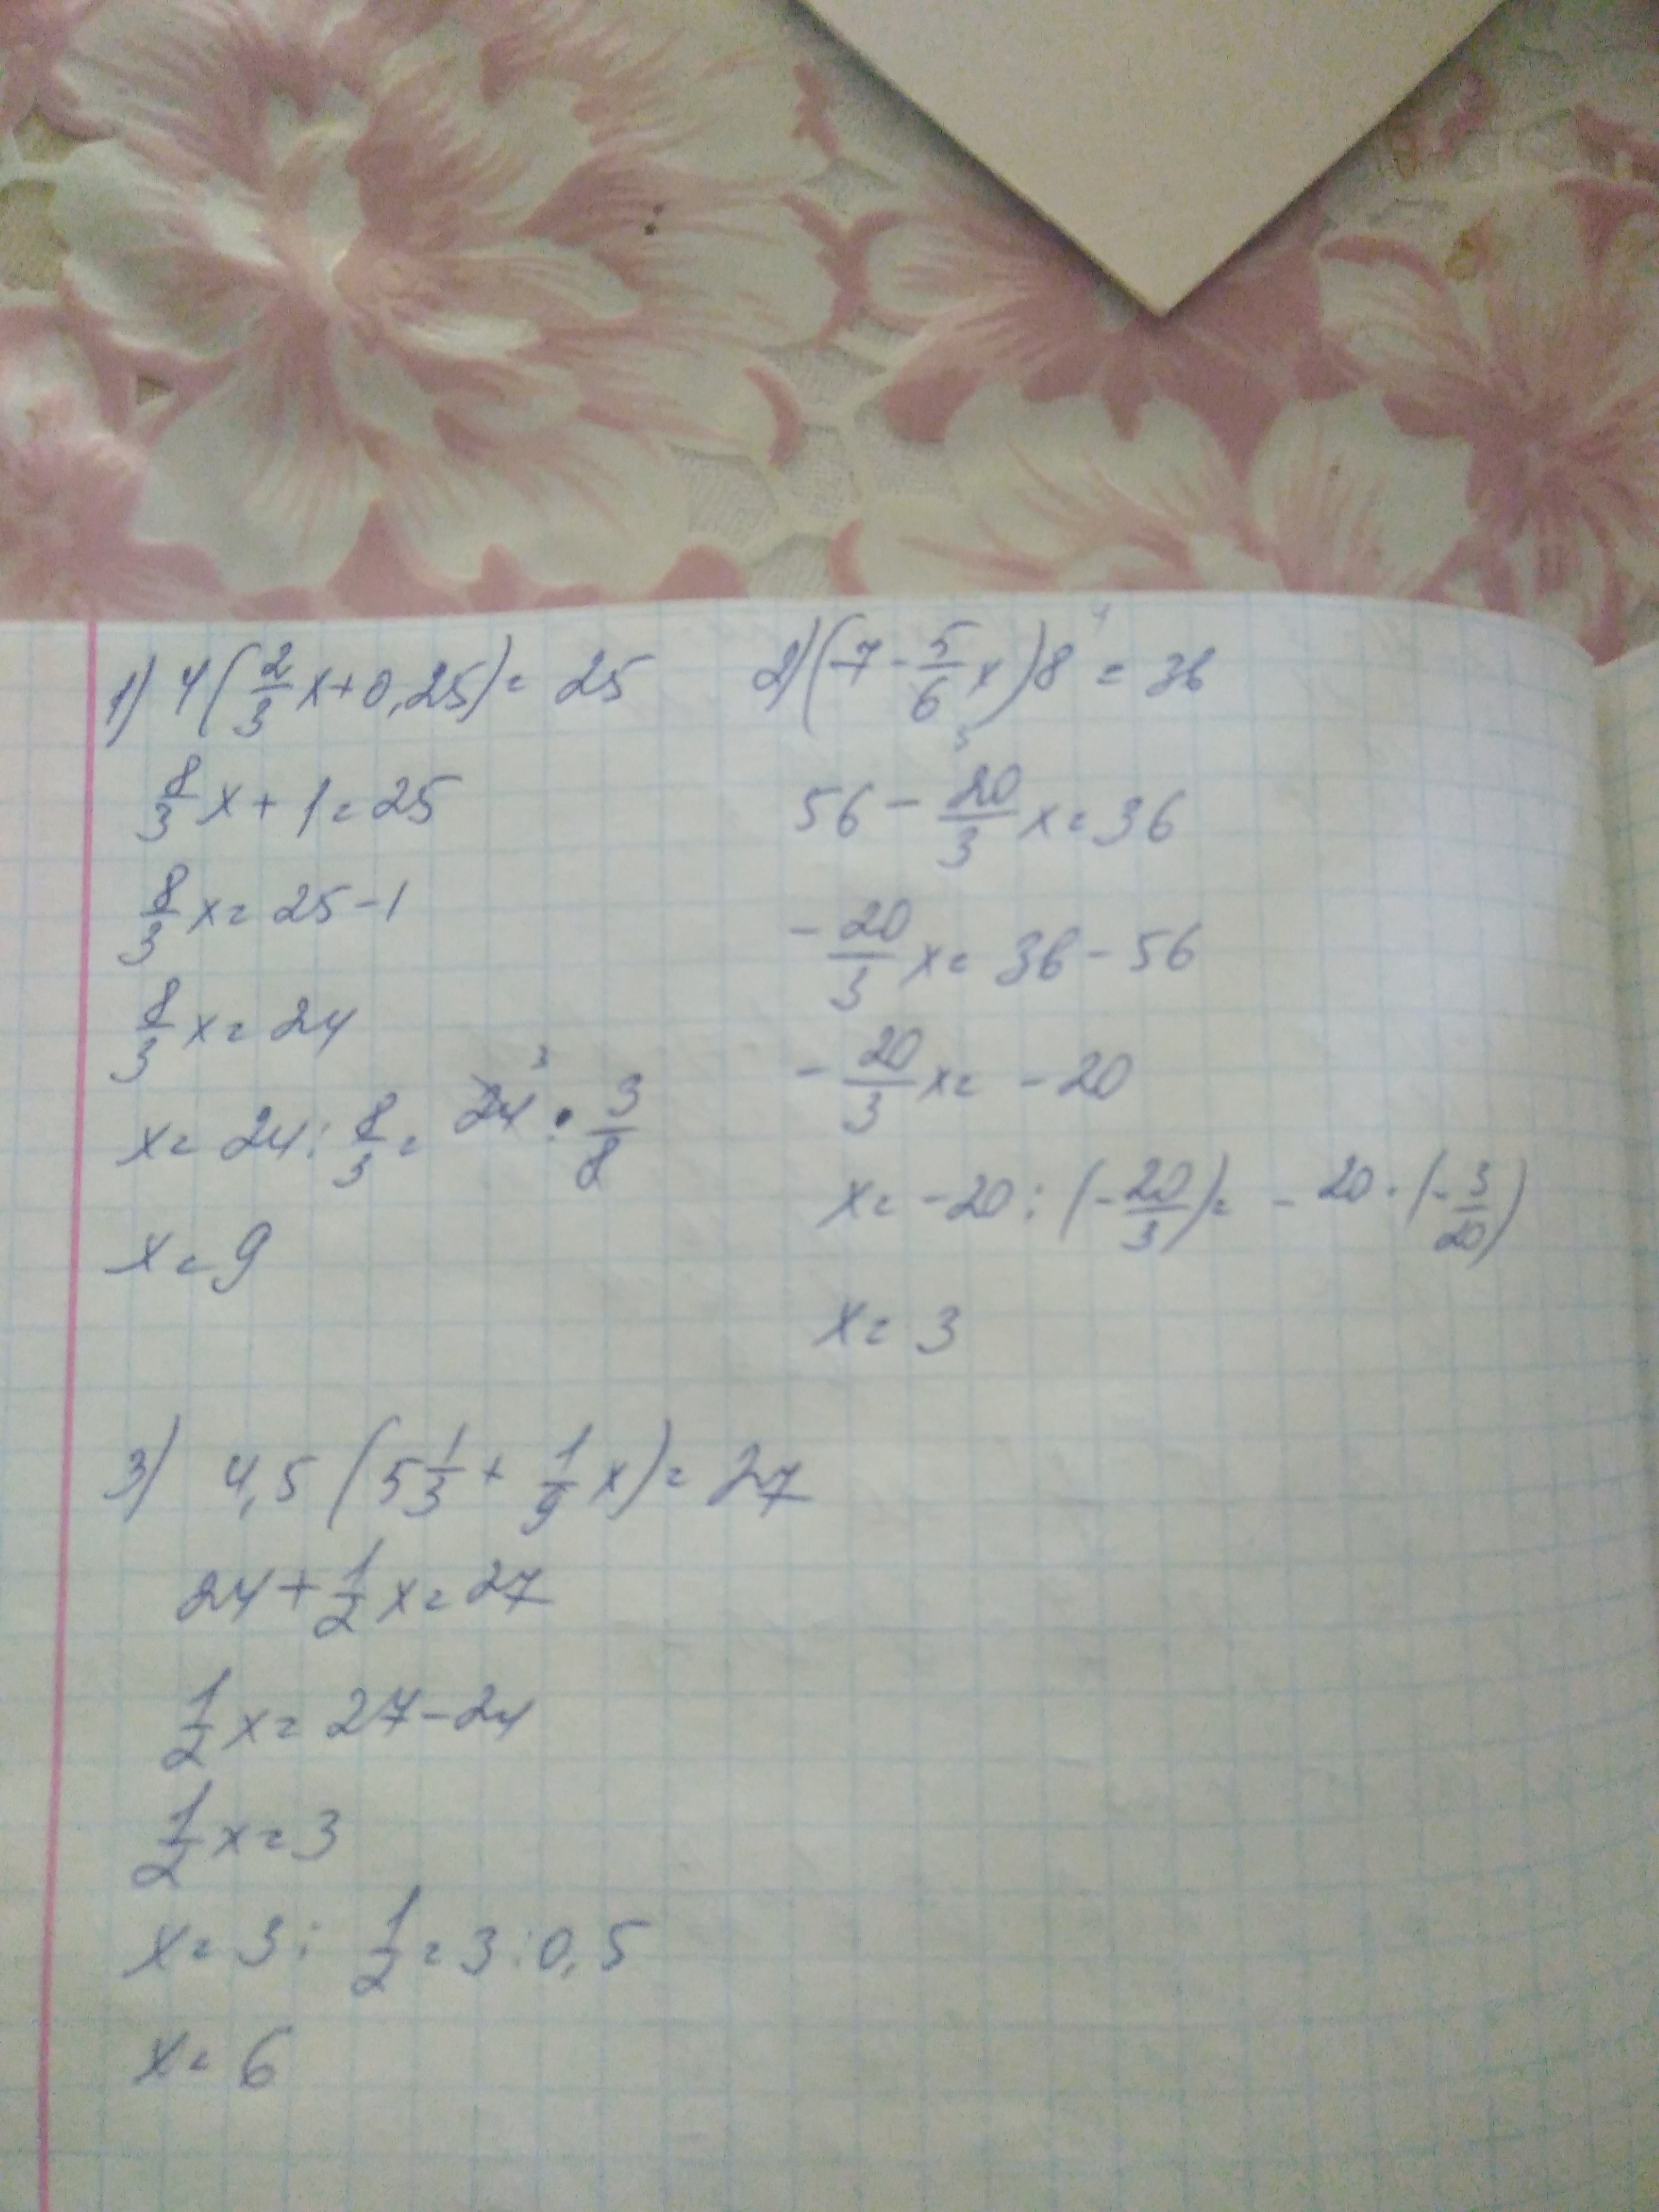 1) 4(2/3x+0,25)=25
8/3x+1=25
8/3x=25-1
8/3x=24
x=24:8/3=24·3/8
3
x=9
2)(7-5/6x)8=36
4
56-20/3x=36
-20/3x=36-56
-20/3x=-20
x=-20:(-20/3)=-20·(-3/20)
x=3
3) 4,5(5 1/3+1/9x)=27
24+1/2x=27
1/2x=27-24
1/2x=3
x=3:1/2=3:0,5
x=6